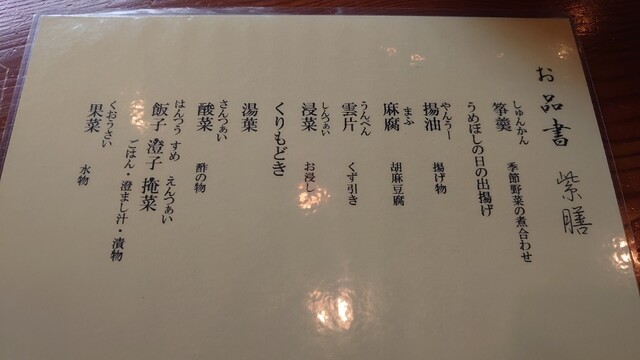 お品書 紫膳
しゅんかん
筝羹 季節野菜の煮合わせ
うめぼしの日の出揚げ
やんうー
揚油 揚げ物
まふ
麻腐 胡麻豆腐
うんぺん
雲片 くず引き
しんつぁい
浸菜 お浸し
くりもどき
湯葉
さんつぁい
酸菜 酢の物
はんつう すめ えんつぁい
飯子 澄子 掩菜
ごはん・澄まし汁・漬物
くおうさい
果菜 水物